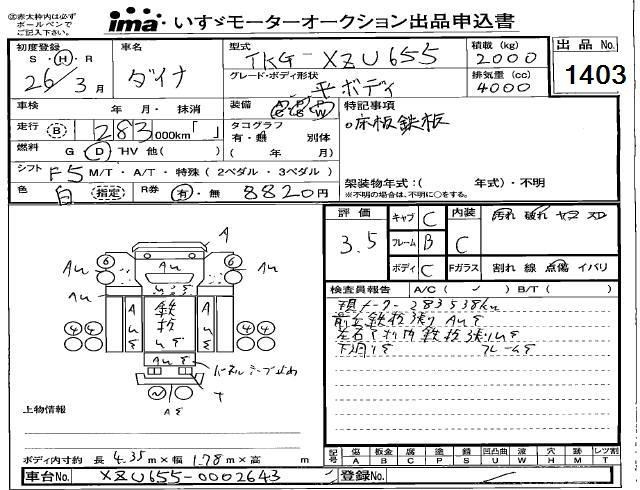 ㊟赤太枠内は必ず
ボールペンで
ご記入下さい。
ima いすゞモーターオークション出品申込書
初度登録 S・H・R 26年 3月
車名 ダイナ
型式 TKG-XZU655
積載(kg) 2000
グレード・ボディ形状 平ボディ
排気量(cc) 4000
出品No. 1403
車検 年 月・抹消
装備 AC PS PW
特記事項
床板鉄板
走行 B 283000km「 」
タコグラフ 有・無 別体
( 年 月)
燃料 G D HV 他( )
シフト F5 M/T・A/T・特殊(2ペダル・3ペダル)
架装物年式:( 年式)・不明
※不明の場合は、不明に○をする。
色 白 指定 R券 有・無 8820円
評価 3.5
キャブ C
フレーム B
ボディ C
内装 C
汚れ 破れ ヤニ スレ
Fガラス 割れ 線 点傷 イバリ
検査員報告 A/C( ) B/T( )
現メーター283538km
前左鉄板張り
左右アオリ内鉄板張
下廻りS
上物情報
A
6 6
4 4 4 4
鉄板
ボディ内寸約 長 4.35m×幅 1.78m×高 m
記号 傷A 板金B 腐C 塗P 錆S 凹凸曲U 波W 穴H 無M 要T レツ割
車台No. XZU655-0002643
登録No.